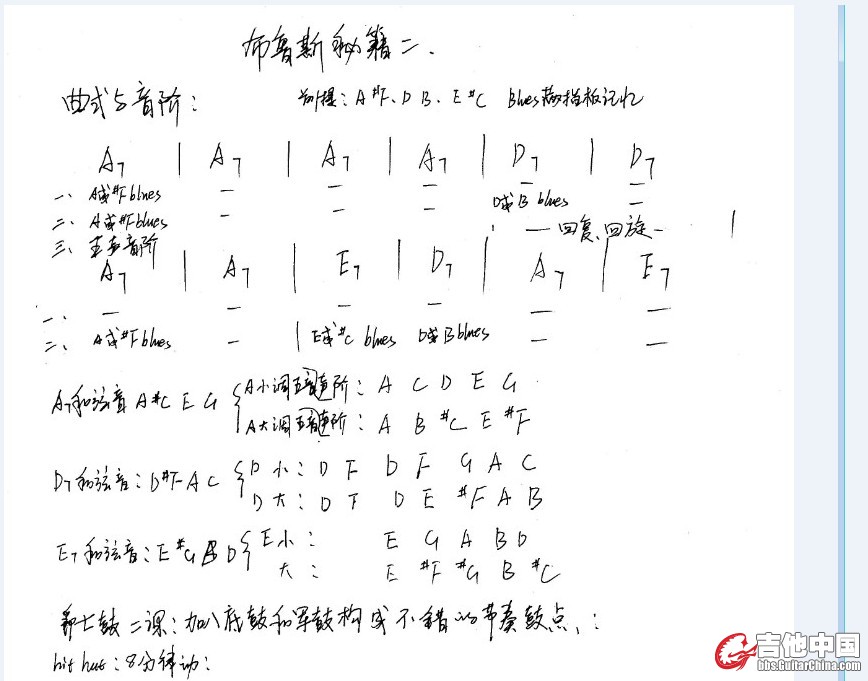 布鲁斯秘籍二.
曲式与音阶: 前提: A #F、D B、E #C Blues 指板记忆
A7 | A7 | A7 | A7 | D7 | D7
一、A或#F blues — — — D或B blues —
二、A或#F blues — — — — 回复、回旋 — |
三、音阶
A7 | A7 | E7 | D7 | A7 | E7
一、 — — — — — —
二、A或#F blues — | E或#C blues D或B blues — —
A7和弦音 A #C E G { A小调五音音阶: A C D E G
A大调五音音阶: A B #C E #F
D7和弦音: D #F A C { D 小: D F D F G A C
D 大: D F D E #F A B
E7和弦音: E #G B D { E小: E G A B D
大: E #F #G B #C
二课: 加入底鼓和军鼓构成不错的节奏鼓点、:
hit hut: 8分律动:
吉他中国
bbs.GuitarChina.com